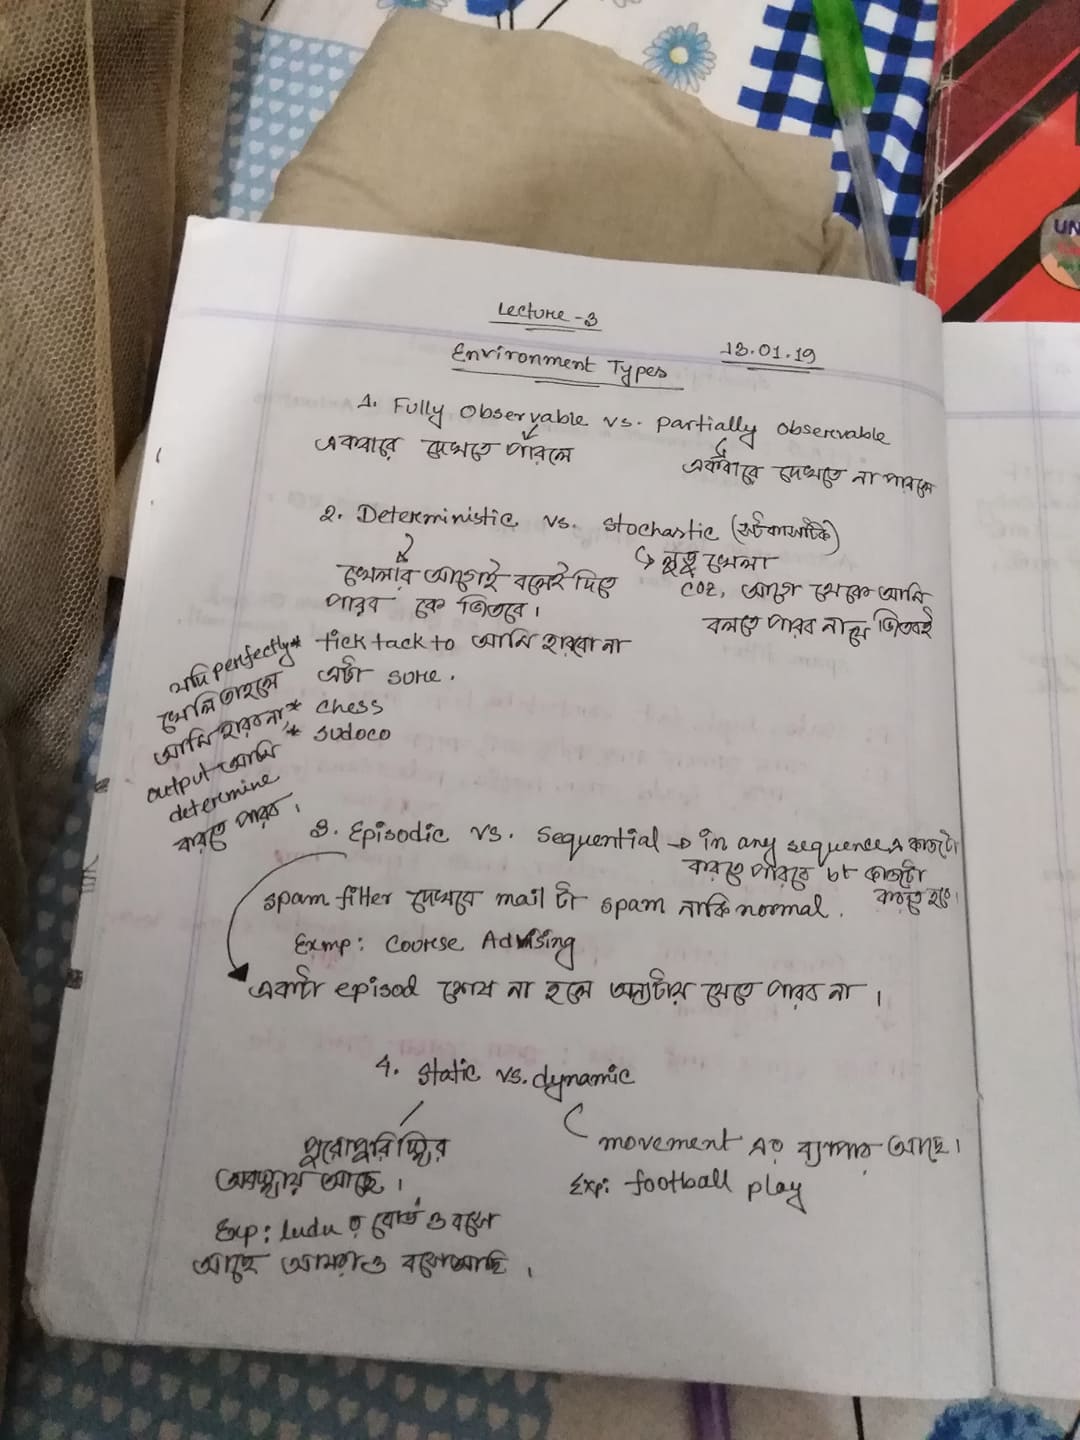 Lecture - 3
13.01.19
Environment Types
1. Fully Observable vs. Partially Observable
একবারে দেখতে পারলে
একবারে দেখতে না পারলে
2. Deterministic vs. Stochastic (স্টকাসটিক)
লুডু খেলা
খেলার আগেই বলেই দিতে
পারব কে জিতবে।
coz, আগে থেকে আমি
বলতে পারব না যে জিতবই
* tick tack to আমি হারবো না
এটা sure.
* chess
* sudoco
যদি perfectly
খেলি তাহলে
আমি হারব না,
output আমি
determine
করতে পারব।
3. Episodic vs. Sequential → in any sequence এ কাজটা
করতে পারবে bt কাজটা
করতে হবে।
spam filter দেখবে mail টা spam নাকি normal.
Exmp: Course Advising
একটা episod শেষ না হলে অন্যটায় যেতে পারব না।
4. Static vs. dynamic
পুরোপুরি স্থির
অবস্থায় আছে।
Exp: ludu র বোর্ড ও বসে
আছে আমরাও বসে আছি।
movement এর ব্যাপার আছে।
Exp: football play
UN